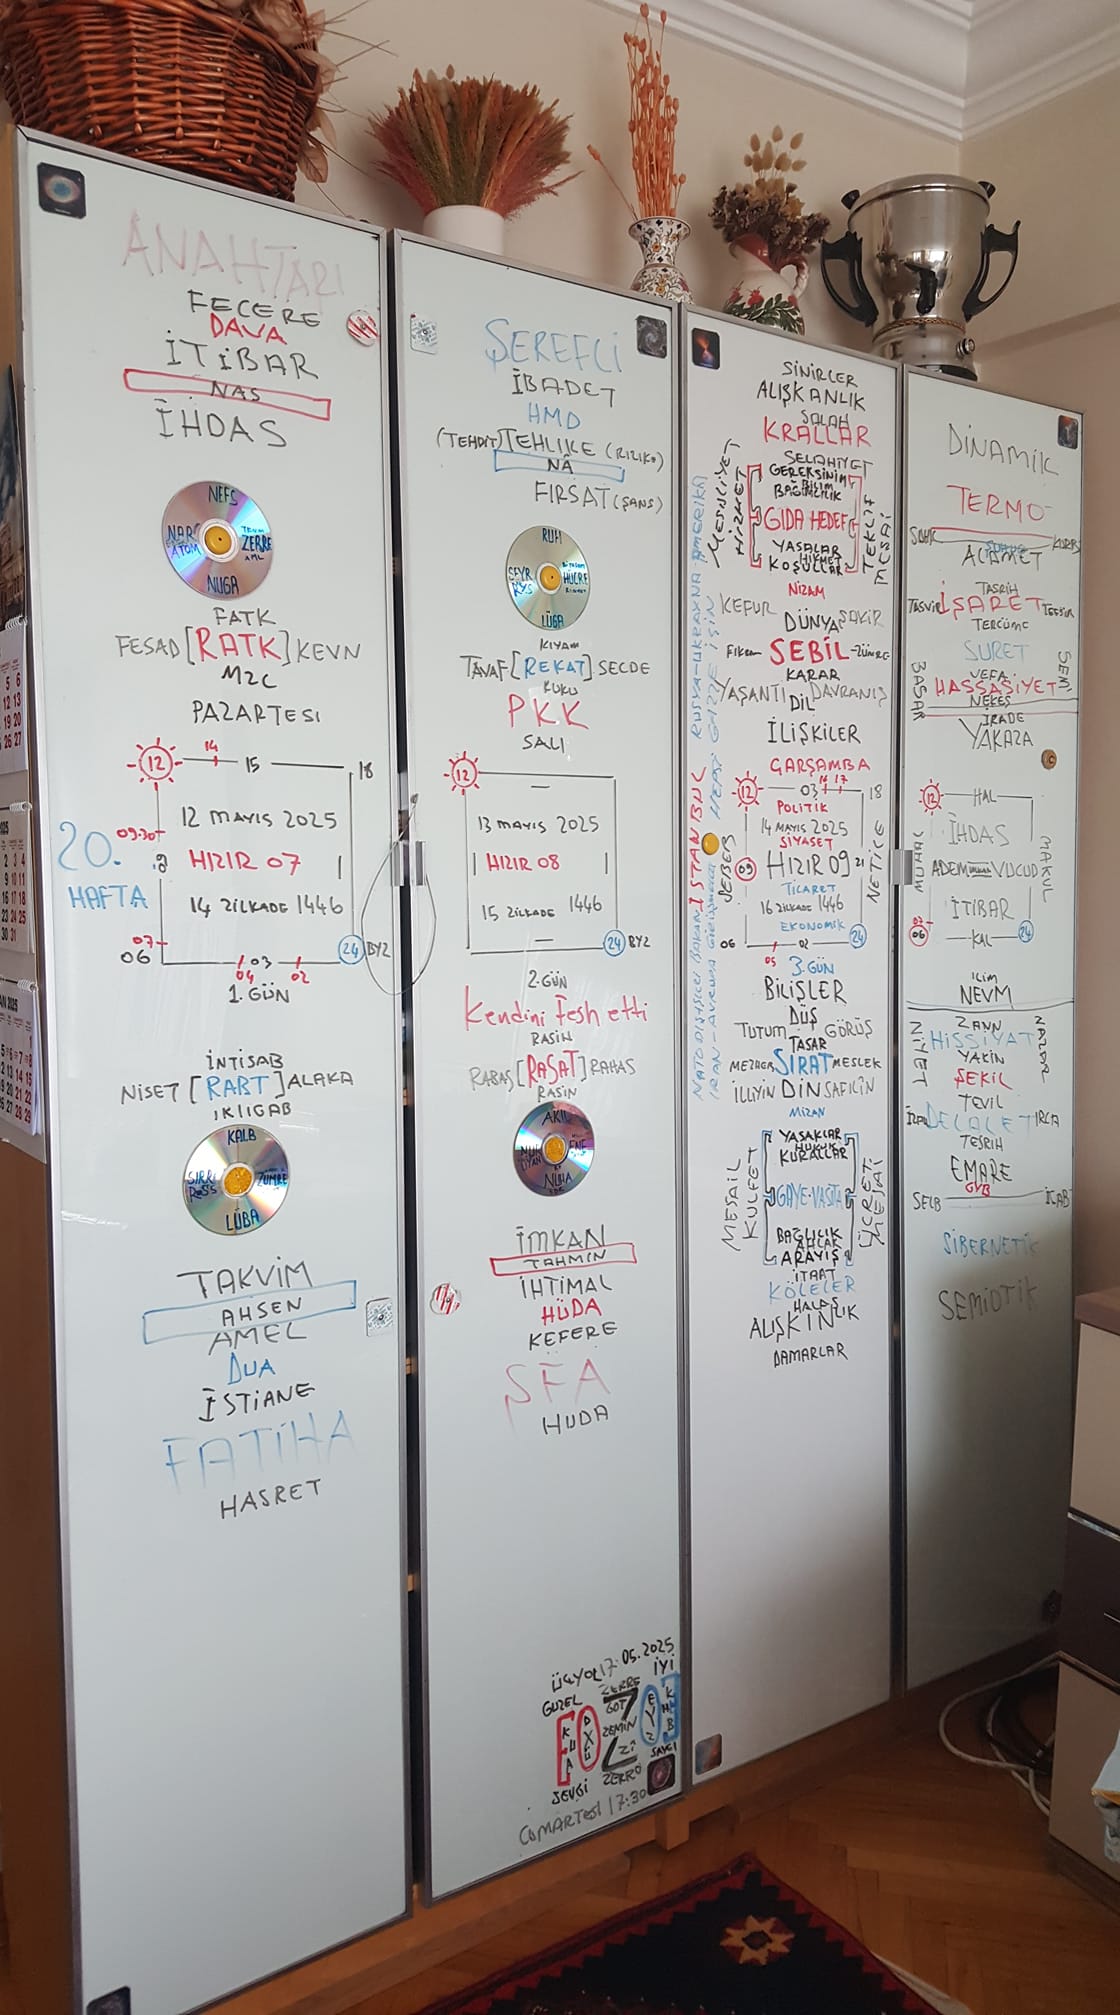 ANAHTARI
FECERE
DAVA
İTİBAR
NAS
İHDAS
NEFS
NAR ZERRE
ATOM
NUGA
FATK
FESAD [RATK] KEVN
MZC
PAZARTESI
12 14 15 18
09:30
12 MAYIS 2025
HIZIR 07
14 ZİLKADE 1446
20.
HAFTA
07
06 04 03 02 24 BYZ
1. GÜN
İNTİSAB
NİSET [RABT] ALAKA
KALB
SIRRI ZÜMRE
LÜBA
TAKVİM
AHSEN
AMEL
DUA
İSTİANE
FATİHA
HASRET
ŞEREFLİ
İBADET
HMD
(TEHDİT) TEHLİKE (RIZIK)
NÂ
FIRSAT (ŞANS)
RUH
SEYR HÜCRE
LÜGA
KIYAM
TAVAF [REKAT] SECDE
RUKU
PKK
SALI
12
13 MAYIS 2025
HIZIR 08
15 ZİLKADE 1446
24 BYZ
2. GÜN
Kendini Fesh etti
RASIN
RABAS [RASAT] RAHAS
RASIN
AKIL
NUHA
İMKAN
TAHMİN
İHTİMAL
HÜDA
KEFERE
ŞFA
HUDA
ÜÇYOL 17.05.2025
GÜZEL ZERRE İYİ
ZEMİN
SEVGİ ZERRO SAYGI
CUMARTESİ 17:30
SİNİRLER
ALIŞKANLIK
SALAH
KRALLAR
SELAHİYET
MESULİYET
HİZMET
GEREKSİNİM
BİLİM
BAĞIMLILIK
GIDA HEDEF
YASALAR
HİKMET
KOŞULLAR
TEKLİF
MESAİ
NİZAM
KEFUR DÜNYA ŞAKİR
SEBİL
KARAR
YAŞANTI DİL DAVRANIŞ
İLİŞKİLER
ÇARŞAMBA
12 03 17 18
POLİTİK
14 MAYIS 2025
SİYASET
SEBEB 09 HIZIR 09 21 NETİCE
TİCARET
16 ZİLKADE 1446
EKONOMİK
06 05 02 24
3. GÜN
BİLİŞLER
DÜŞ
TUTUM GÖRÜŞ
TASAR
MEZHEB SIRAT MESLEK
İLLİYİN DİN SAFİLİN
MİZAN
YASAKLAR
HUKUK
KURALLAR
MESAİL
KÜLFET
GAYE-VASITA
ÜCRET
BAĞLILIK
AHLAK
ARAYIŞ
İTAAT
KÖLELER
HALAS
ALIŞKINLIK
DAMARLAR
RUSYA-UKRAYNA AMERİKA
GAZZE İÇİN
HEPSİ İSTANBUL
DİNAMİK
TERMO-
ALAMET
TASRİH
TASVİR İŞARET TEFSİR
TERCÜME
SURET
VEFA
BASAR HASSASİYET SEMİ
NEKES
İRADE
YAKAZA
12 HAL
İHDAS
ADEM VÜCUD
MAKUL
İTİBAR
07
06 KAL 24
İLİM
NEVM
ZANN
NİYET HİSSİYAT NAZAR
YAKİN
ŞEKİL
TEVİL
DELALET IRCA
TEŞRİH
EMARE
GYB
SELB İCAB
SİBERNETİK
SEMİOTİK